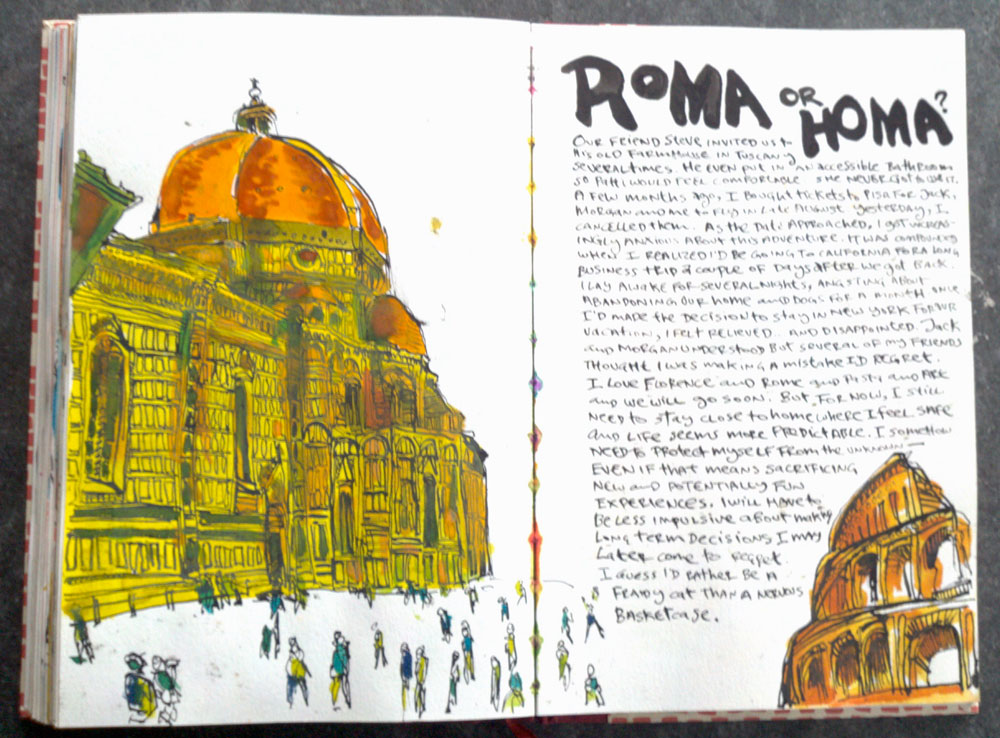 ROMA OR HOMA?
OUR FRIEND STEVE INVITED US to
HIS OLD FARMHOUSE IN TUSCANY
SEVERAL TIMES. HE EVEN PUT IN AN ACCESSIBLE BATHROOM
SO PATTI WOULD FEEL COMFORTABLE SHE NEVER GOT TO USE IT.
A FEW MONTHS AGO, I BOUGHT TICKETS to PISA FOR JACK,
MORGAN and ME to FLY IN LATE AUGUST. YESTERDAY, I
CANCELLED THEM. AS THE DATE APPROACHED, I GOT INCREAS-
INGLY ANXIOUS ABOUT THIS ADVENTURE. IT WAS COMPOUNDED
WHEN I REALIZED I'D BE GOING TO CALIFORNIA FOR A LONG
BUSINESS TRIP A COUPLE OF DAYS AFTER WE GOT BACK.
I LAY AWAKE FOR SEVERAL NIGHTS, ANGSTING ABOUT
ABANDONING OUR HOME and DOGS FOR A MONTH ONCE
I'D MADE THE DECISION to STAY IN NEW YORK FOR OUR
VACATION, I FELT RELIEVED.. AND DISAPPOINTED. JACK
and MORGAN UNDERSTOOD BUT SEVERAL OF MY FRIENDS
THOUGHT I WAS MAKING A MISTAKE I'D REGRET.
I LOVE FLORENCE and ROME and PASTA and ART
and WE WILL GO SOON. BUT, FOR NOW, I STILL
NEED to STAY CLOSE to HOME WHERE I FEEL SAFE
and LIFE SEEMS MORE PREDICTABLE. I SOMEHOW
NEED to PROTECT MYSELF FROM THE UNKNOWN —
EVEN IF THAT MEANS SACRIFICING
NEW and POTENTIALLY FUN
EXPERIENCES. I WILL HAVE to
BE LESS IMPULSIVE ABOUT MAKING
LONG TERM DECISIONS I MAY
LATER COME to REGRET.
I GUESS I'D RATHER BE A
FRAIDY CAT THAN A NERVOUS
BASKETCASE.